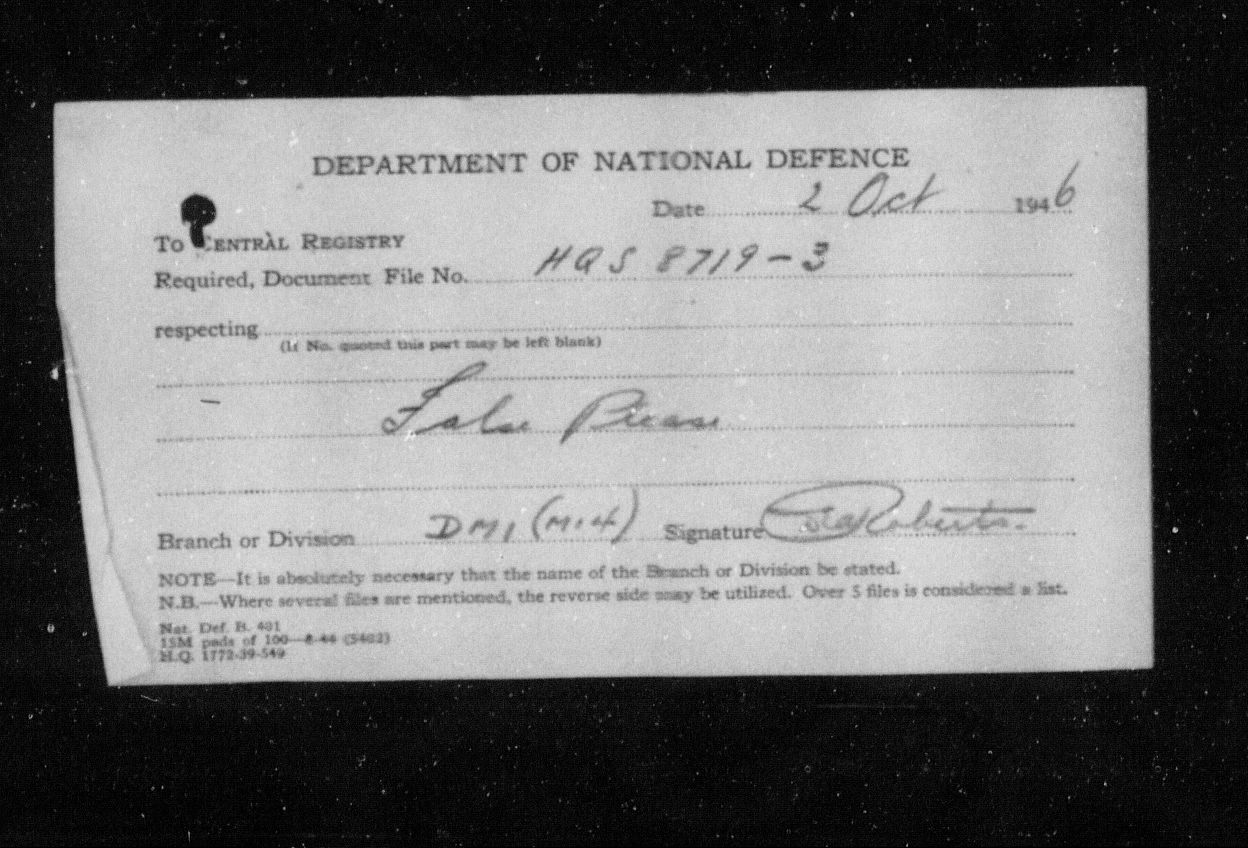 DEPARTMENT OF NATIONAL DEFENCE
Date 2 Oct 1946
To CENTRAL REGISTRY
Required, Document File No. HQS 8719-3
respecting
(If No. quoted this part may be left blank)
False
Branch or Division DMI (MI4) Signature Roberts.
NOTE—It is absolutely necessary that the name of the Branch or Division be stated.
N.B.—Where several files are mentioned, the reverse side may be utilized. Over 5 files is considered a list.
Nat. Def. B. 401
15M pads of 100—8-44 (5402)
H.Q. 1772-39-549